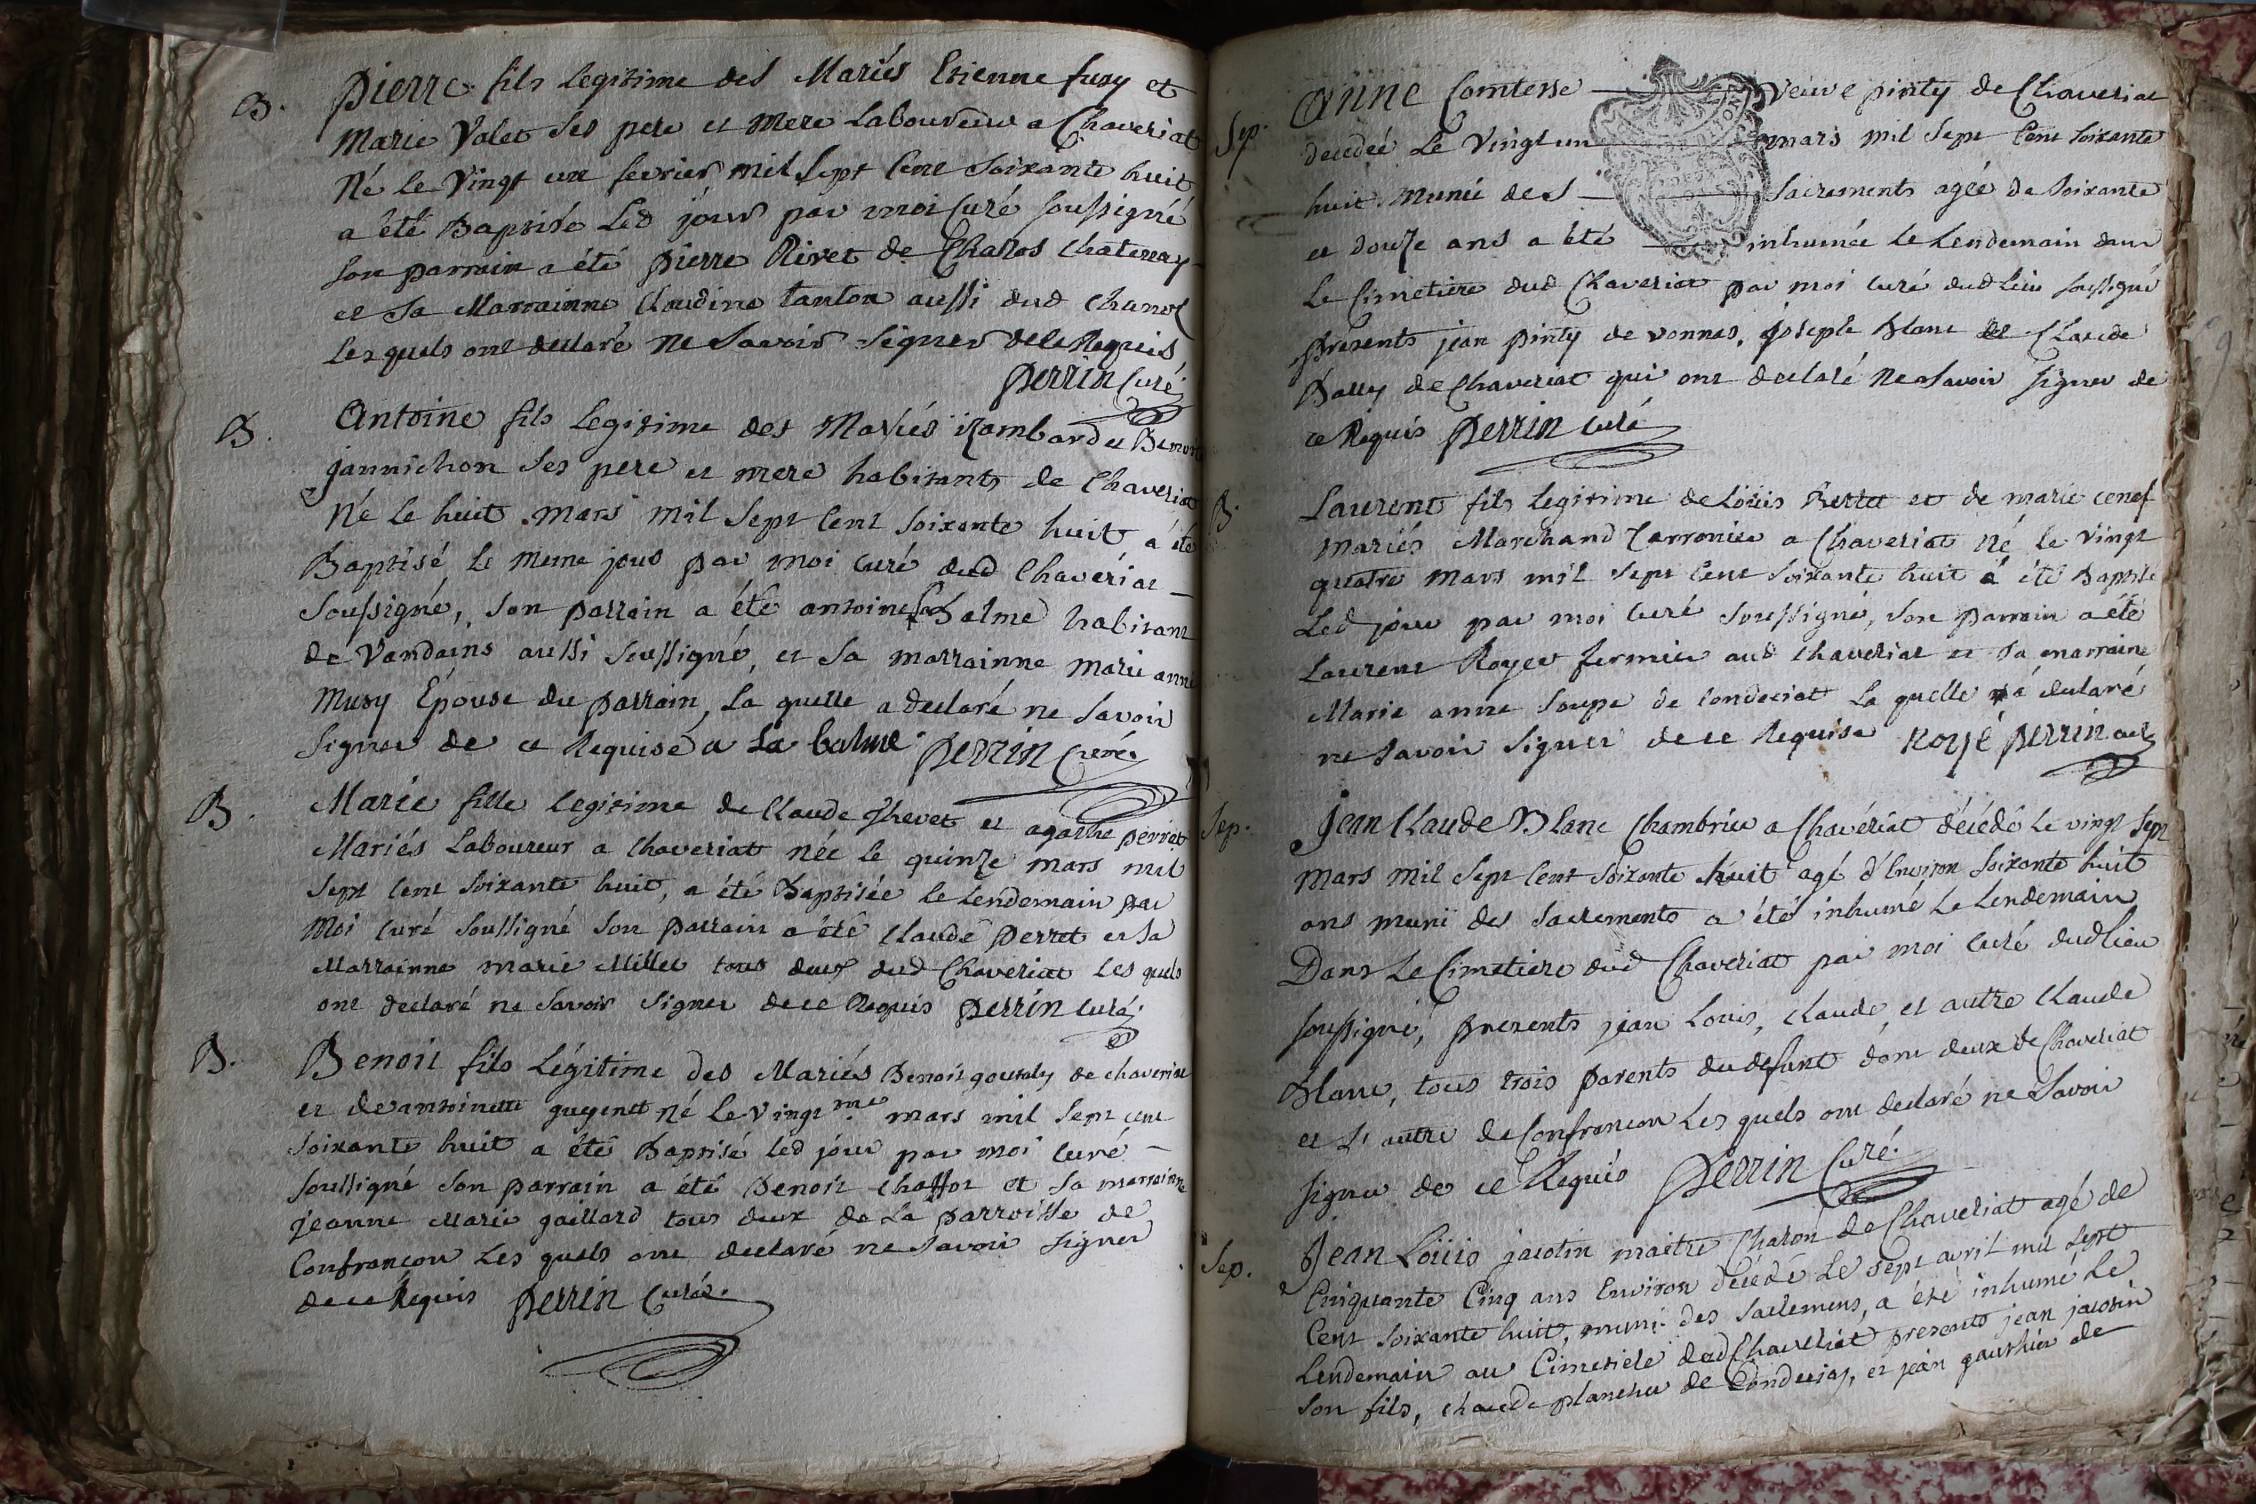 B. Pierre fils legitime des Mariés Etienne fusy et
Marie Volet ses pere et mere Laboureur a Chaveriat
Né le Vingt un fevrier mil sept Cent soixante huit
a été Baptisé Led jour par moi Curé soussigné
son parrain a été pierre Rivet de Chanos Chatenay
et sa Marrainne Claudine tanton aussi dud Chanos
les quels ont declaré ne savoir signer de ce Requis
perrin Curé
B. Antoine fils legitime des Mariés izambard et Benoite
jannichon ses pere et mere habitants de Chaveriat
Né le huit mars mil sept cent soixante huit a été
Baptisé le meme jour par moi curé dud Chaveriat
soussigné, son parrain a été antoine balme habitant
de Vandains aussi soussigné, et sa marrainne marie anne
Musy Epouse du parrain, La quelle a declaré ne savoir
signer de ce Requise a La balme perrin Curé
B. Marie fille legitime de Claude thevet et agathe perret
Mariés Laboureur a Chaveriat née le quinze mars mil
sept cent soixante huit, a été Baptisée le Lendemain par
Moi curé soussigné son parrain a été Claude perret et sa
Marrainne marie Millet tous deux dud Chaveriat les quels
ont declaré ne savoir signer de ce Requis perrin curé
B. Benoit fils Légitime des Mariés Benoit goutaly de chaveriat
et de antoinette guyenet né le vingt me mars mil sept cent
soixante huit a été Baptisé led jour par moi curé
soussigné son parrain a été Benoit chaffot et sa marrainne
jeanne Marie gaillard tous deux de La parroisse de
Confrançon les quels ont declaré ne savoir signer
de ce Requis perrin Curé
Sep. Anne Comtesse Veuve pinty de Chaveriat
decedée Le Vingt un mars mil sept Cent soixante
huit munie des sacrements agée de soixante
et douze ans a été inhumée le Lendemain dans
le Cimetiere dud Chaveriat par moi curé dud lieu soussigné
presents jean pinty de vonnas, joseph Blanc et Claude
Bally de Chaveriat qui ont declaré ne savoir signer de
ce Requis perrin Curé
B. Laurent fils legitime de Loüis Perret et de marie cenef
mariés Marchand Tarronier a Chaveriat Né le vingt
quatre mars mil sept Cent soixante huit a été Baptisé
Led jour par moi Curé soussigné, son parrain a été
Laurent Royer fermier aud Chaveriat et sa marraine
Marie anne soupe de condeciat La quelle a declaré
ne savoir signer de ce Requise Royé perrin curé
Sep. Jean Claude Blanc Chambrier a Chavériat décédé Le vingt sept
mars mil sept cent soixante huit agé d'Environ soixante huit
ans muni des sacrements a été inhumé Le Lendemain
Dans Le Cimetiere dud Chaveriat par moi curé dud lieu
soussigné, presents jean Louis, Claude, et autre Claude
Blanc, tous trois parents du defunt dont deux de Chaveriat
et L'autre de Confrancon Les quels ont declaré ne savoir
signer de ce Requis perrin Curé
Sep. Jean Loüis jacotin maitre Charon de Chaveriat agé de
Cinquante Cinq ans Environ décédé Le sept avril mil sept
Cent soixante huit, muni des sacremens, a été inhumé Le
Lendemain au Cimetiere dud Chaveriat presents jean jacotin
son fils, claude plancher de Condeciat, et jean gauthier de